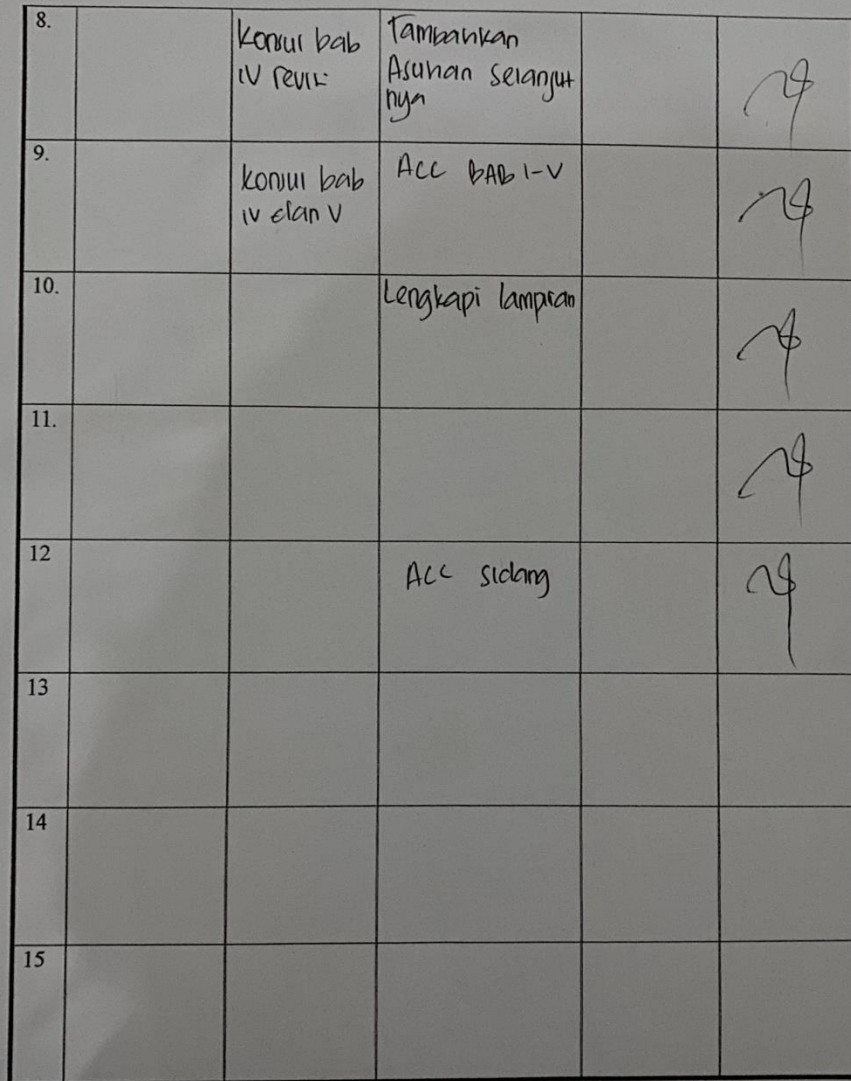 8.
Konsul bab
IV revisi
Tambahkan
Asuhan selanjut
nya
9.
konsul bab
IV dan V
ACC BAB I-V
10.
Lengkapi lampiran
11.
12
ACC sidang
13
14
15